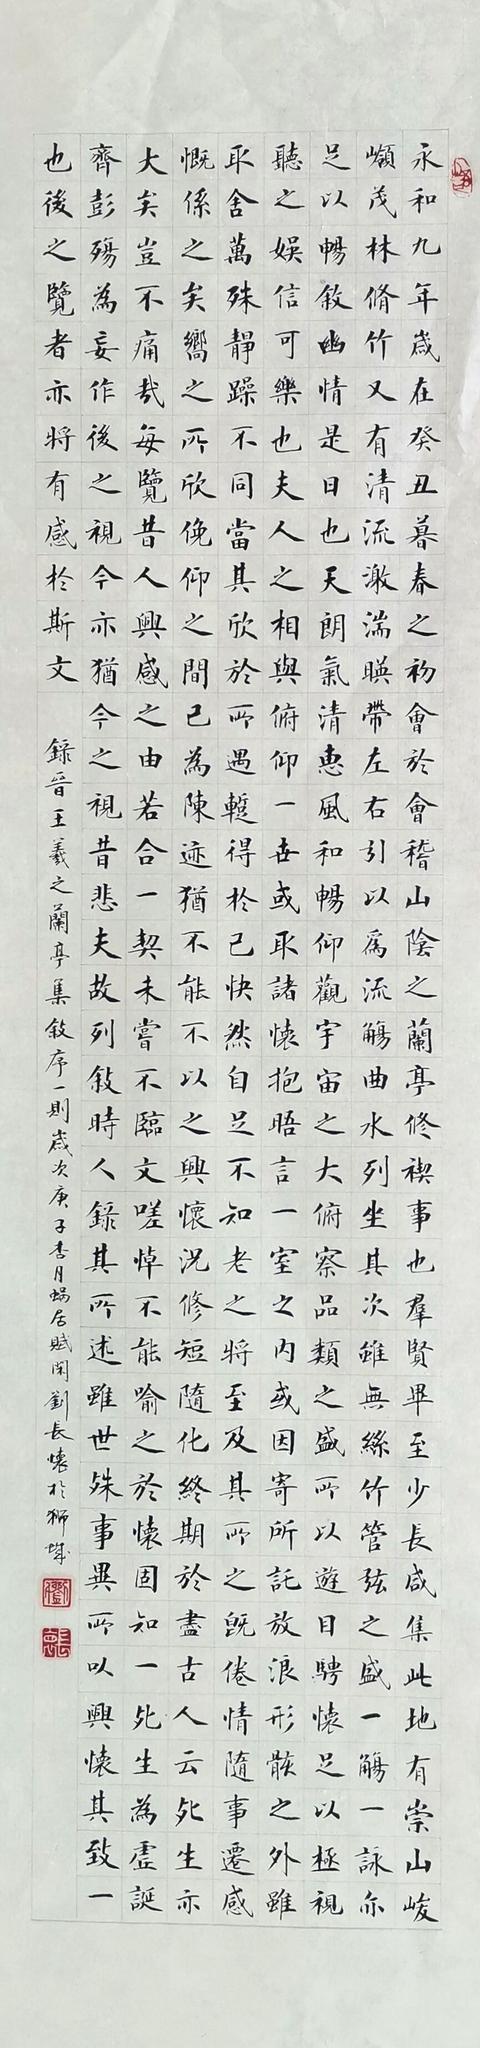 永和九年歲在癸丑暮春之初會於會稽山陰之蘭亭修禊事也羣賢畢至少長咸集此地有崇山峻
嶺茂林脩竹又有清流激湍暎帶左右引以為流觴曲水列坐其次雖無絲竹管弦之盛一觴一詠亦
足以暢敘幽情是日也天朗氣清惠風和暢仰觀宇宙之大俯察品類之盛所以遊目騁懷足以極視
聽之娛信可樂也夫人之相與俯仰一世或取諸懷抱晤言一室之內或因寄所託放浪形骸之外雖
取舍萬殊靜躁不同當其欣於所遇蹔得於己快然自足不知老之將至及其所之既倦情隨事遷感
慨係之矣嚮之所欣俛仰之間已為陳迹猶不能不以之興懷況修短隨化終期於盡古人云死生亦
大矣豈不痛哉每覽昔人興感之由若合一契未嘗不臨文嗟悼不能喻之於懷固知一死生為虛誕
齊彭殤為妄作後之視今亦猶今之視昔悲夫故列敘時人錄其所述雖世殊事異所以興懷其致一
也後之覽者亦將有感於斯文
錄晉王羲之蘭亭集敘序一則歲次庚子杏月蝸居賦閑劉長懷於獅城